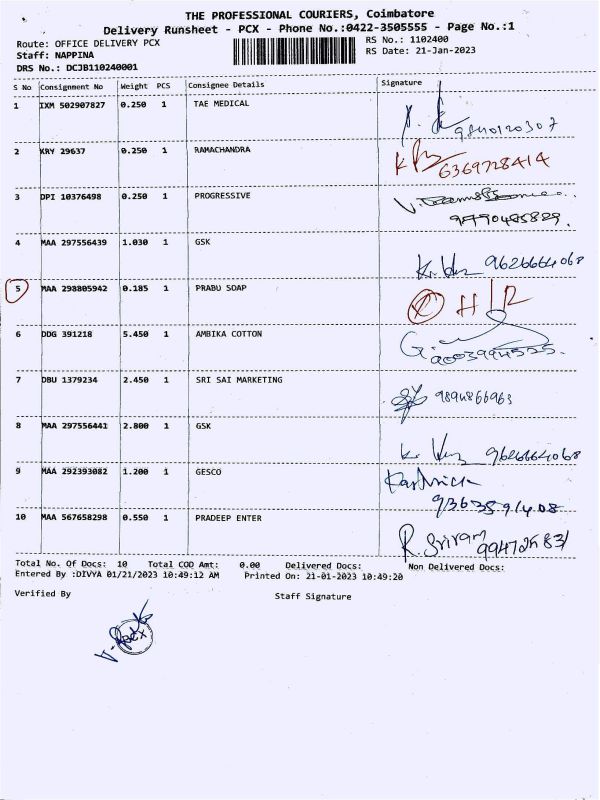 THE PROFESSIONAL COURIERS, Coimbatore
Delivery Runsheet - PCX - Phone No.:0422-3505555 - Page No.:1
Route: OFFICE DELIVERY PCX RS No.: 1102400
Staff: NAPPINA RS Date: 21-Jan-2023
DRS No.: DCJB110240001
S No Consignment No Weight PCS Consignee Details Signature
1 IXM 502907827 0.250 1 TAE MEDICAL
9840120307
2 KRY 29637 0.250 1 RAMACHANDRA
6369728414
3 DPI 10376498 0.250 1 PROGRESSIVE
4 MAA 297556439 1.030 1 GSK
9626664068
5 MAA 298805942 0.185 1 PRABU SOAP
6 DDG 391218 5.450 1 AMBIKA COTTON
9003994525.
7 DBU 1379234 2.450 1 SRI SAI MARKETING
9894866963
8 MAA 297556441 2.800 1 GSK
9626664068
9 MAA 292393082 1.200 1 GESCO
Karthick
10 MAA 567658298 0.550 1 PRADEEP ENTER
R. Sriram
Total No. Of Docs: 10 Total COD Amt: 0.00 Delivered Docs: Non Delivered Docs:
Entered By :DIVYA 01/21/2023 10:49:12 AM Printed On: 21-01-2023 10:49:20
Verified By Staff Signature